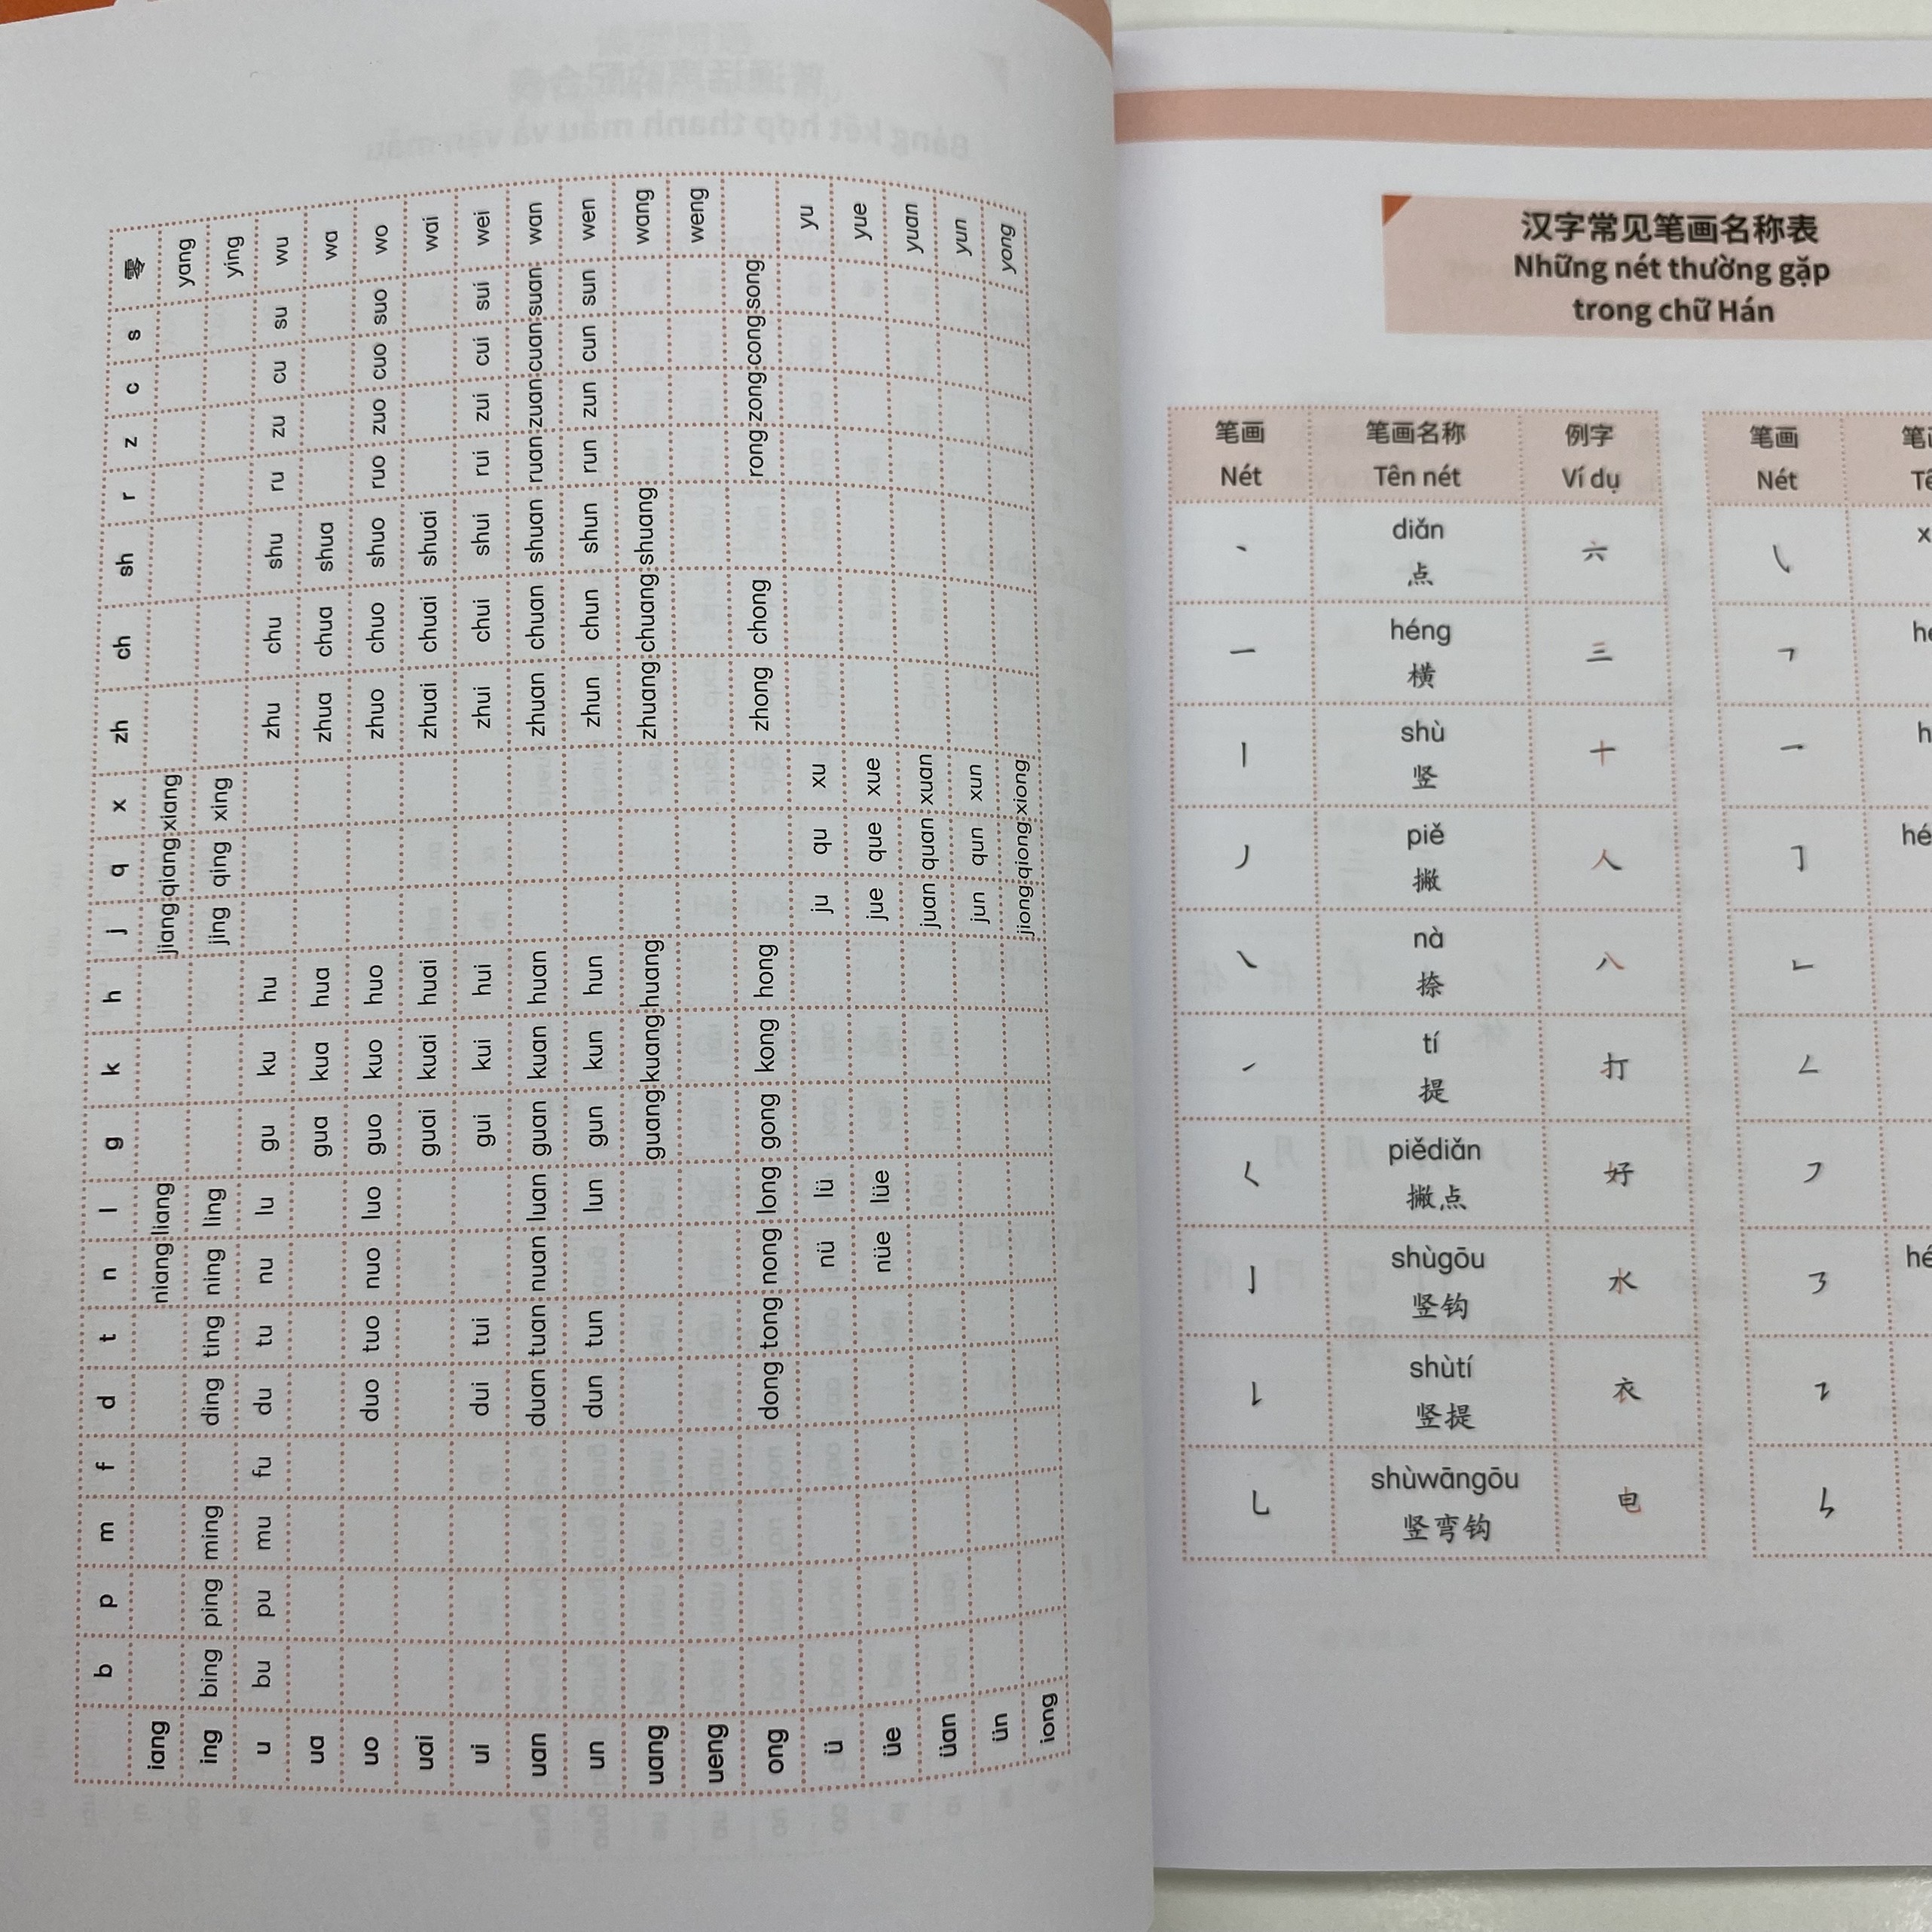 b p m f d t n l g k h j q x zh ch sh r z c s 零
iang niang liang jiang qiang xiang yang
ing bing ping ming ding ting ning ling jing qing xing ying
u bu pu mu fu du tu nu lu gu ku hu zhu chu shu ru zu cu su wu
ua gua kua hua zhua chua shua wa
uo duo tuo nuo luo guo kuo huo zhuo chuo shuo ruo zuo cuo suo wo
uai guai kuai huai zhuai chuai shuai wai
ui dui tui gui kui hui zhui chui shui rui zui cui sui wei
uan duan tuan nuan luan guan kuan huan zhuan chuan shuan ruan zuan cuan suan wan
un dun tun lun gun kun hun zhun chun shun run zun cun sun wen
uang guang kuang huang zhuang chuang shuang wang
ueng weng
ong dong tong nong long gong kong hong zhong chong rong zong cong song
ü nü lü ju qu xu yu
üe nüe lüe jue que xue yue
üan juan quan xuan yuan
ün jun qun xun yun
iong jiong qiong xiong yong
汉字常见笔画名称表
Những nét thường gặp
trong chữ Hán
笔画 笔画名称 例字
Nét Tên nét Ví dụ
㇔ diǎn 六
点
㇐ héng 三
横
㇑ shù 十
竖
㇓ piě 人
撇
㇏ nà 八
捺
㇀ tí 打
提
㇛ piědiǎn 好
撇点
㇚ shùgōu 水
竖钩
㇙ shùtí 衣
竖提
㇟ shùwāngōu 电
竖弯钩
笔画
Nét
㇂
㇕
㇖
㇆
㇗
㇜
㇇
㇋
㇊
㇉